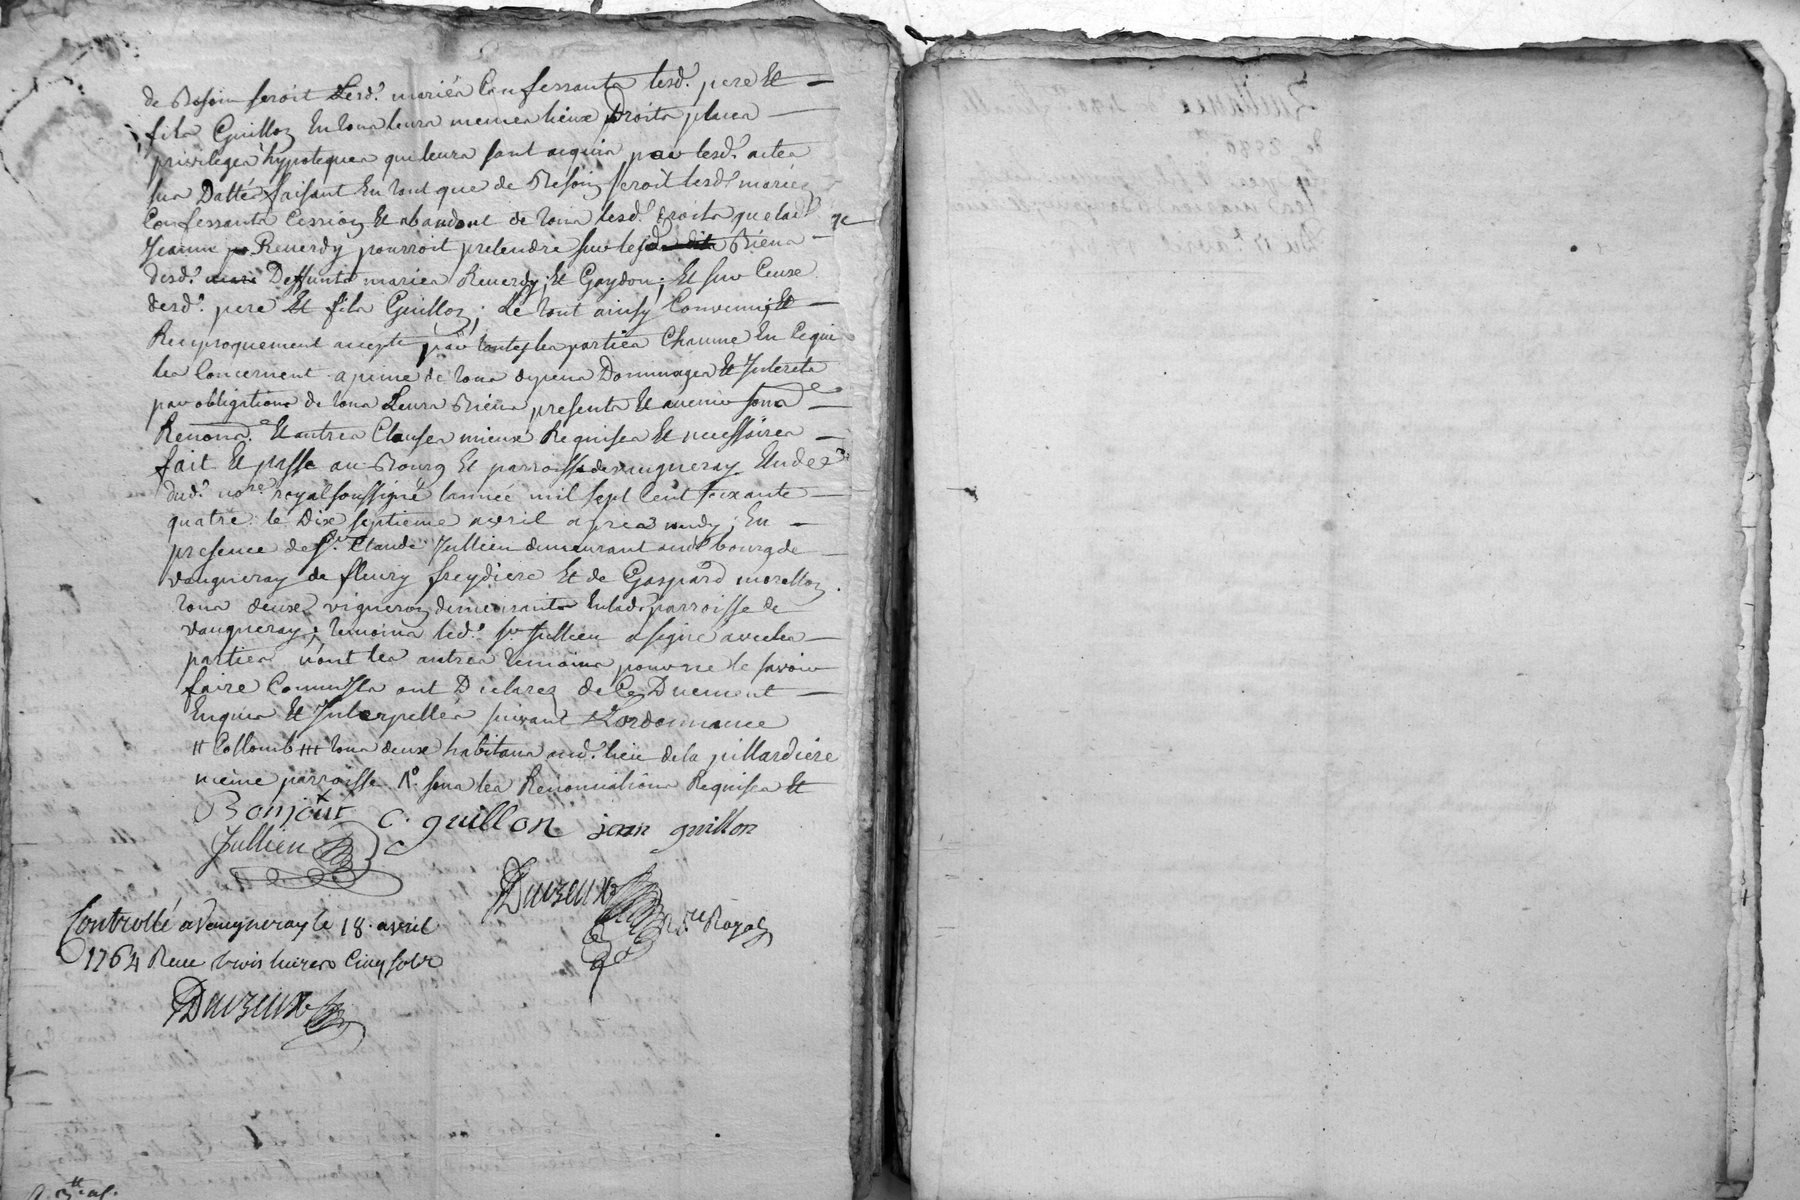 de Besoin seroit Lesd.s mariés Confessants lesd.s pere Et
fils Guillon En tous leurs memes lieux Droits places
privileges hypoteques qui leurs sont acquis par lesd.s actes
sus Dattés faisant En tant que de Besoin seroit lesd.s mariés
Confessants Cession Et abandont de tous lesd.s droits que lad.e
Jeanne Reverdy pourroit pretendre sur les Biens
desd.s Deffunts mariés Reverdy, Et Gaydon; Et sur Ceux
desd.s pere Et fils Guillon; Le tout ainsy Convenu Et
Reciproquement accepté par les parties Chacune En Ce qui
les Concernent a peine de tous depens Dommages Et Interets
par obligations de tous Leurs Biens presents Et avenir sous
Renons. Et autres Clauses mieux Requises Et necessaires
fait Et passé au Bourg Et parroisse de vaugneray Etude
dud.t no.re royal soussigné l'année mil sept Cent soixante
quatre le Dix septieme avril apres midy; En
presence de s.r Claude Jullien demeurant aud.t bourg de
vaugneray de fleury freydiere Et de Gaspard morellon
tous deux vigneron demeurants En lad.e parroisse de
vaugneray; temoins led.t s.r Jullien a signé avec les
parties non les autres temoins pour ne le savoir
faire Comm'Ils ont Declarez de Ce Duement
Enquis Et Interpellés suivant L'ordonnance
# Collomb ### tous deux habitans aud.t lieu de la pillardiere
meme parroisse sous les Renonciations Requises Et
Bonjour C. guillon jean guillon
Jullien
Duvzeux
N.re Royal
Controllé a Vaugneray le 18. avril
1764 Receu trois livres Cinq sols
Duvzeux